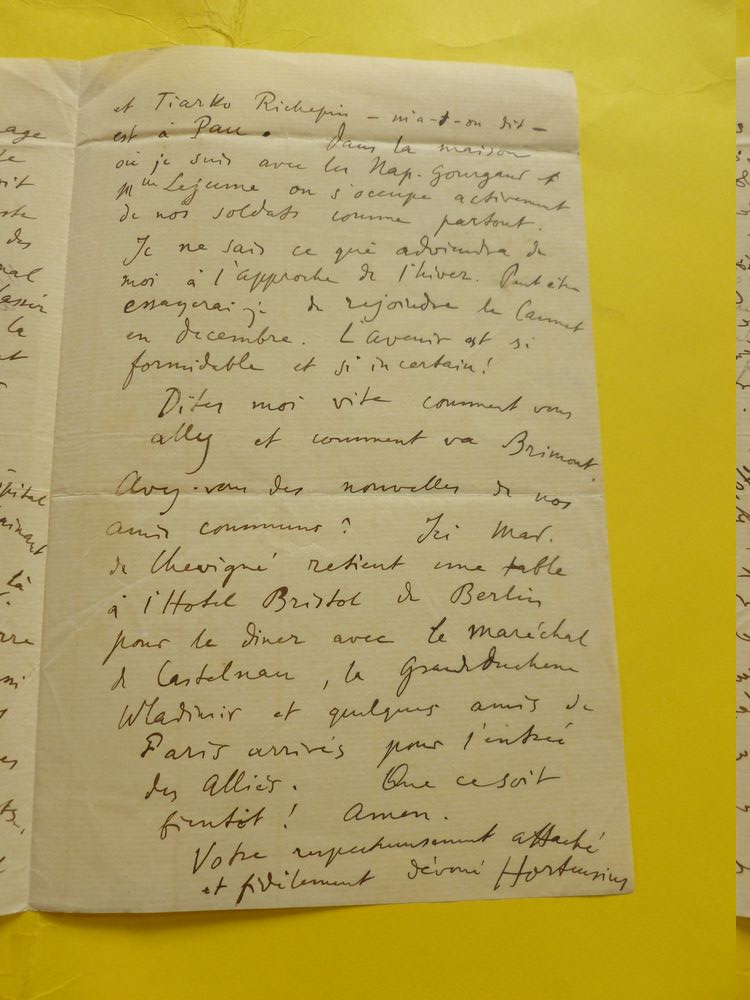 et Tiarko Richepin – m'a-t-on dit –
est à Pau. Dans la maison
où je suis avec les Nap. Gourgaud et
Mme Lejeune on s'occupe activement
de nos soldats comme partout.
Je ne sais ce que adviendra de
moi à l'approche de l'hiver. Peut être
essayerai-je de rejoindre le Cannet
en decembre. L'avenir est si
formidable et si incertain!
Dites moi vite comment vous
allez et comment va Brimont.
Avez-vous des nouvelles de nos
amis communs? Ici Mad.
de Chevigné retient une table
à l'Hotel Bristol de Berlin
pour le diner avec le maréchal
de Castelnau, la Grandeduchesse
Wladimir et quelques amis de
Paris arrivés pour l'entrée
des Alliés. Que ce soit
bientôt! Amen.
Votre respectueusement attaché
et fidèlement dévoué Hortensius
age
te
oit
ste
des
nal
la
et
pital
là
rre